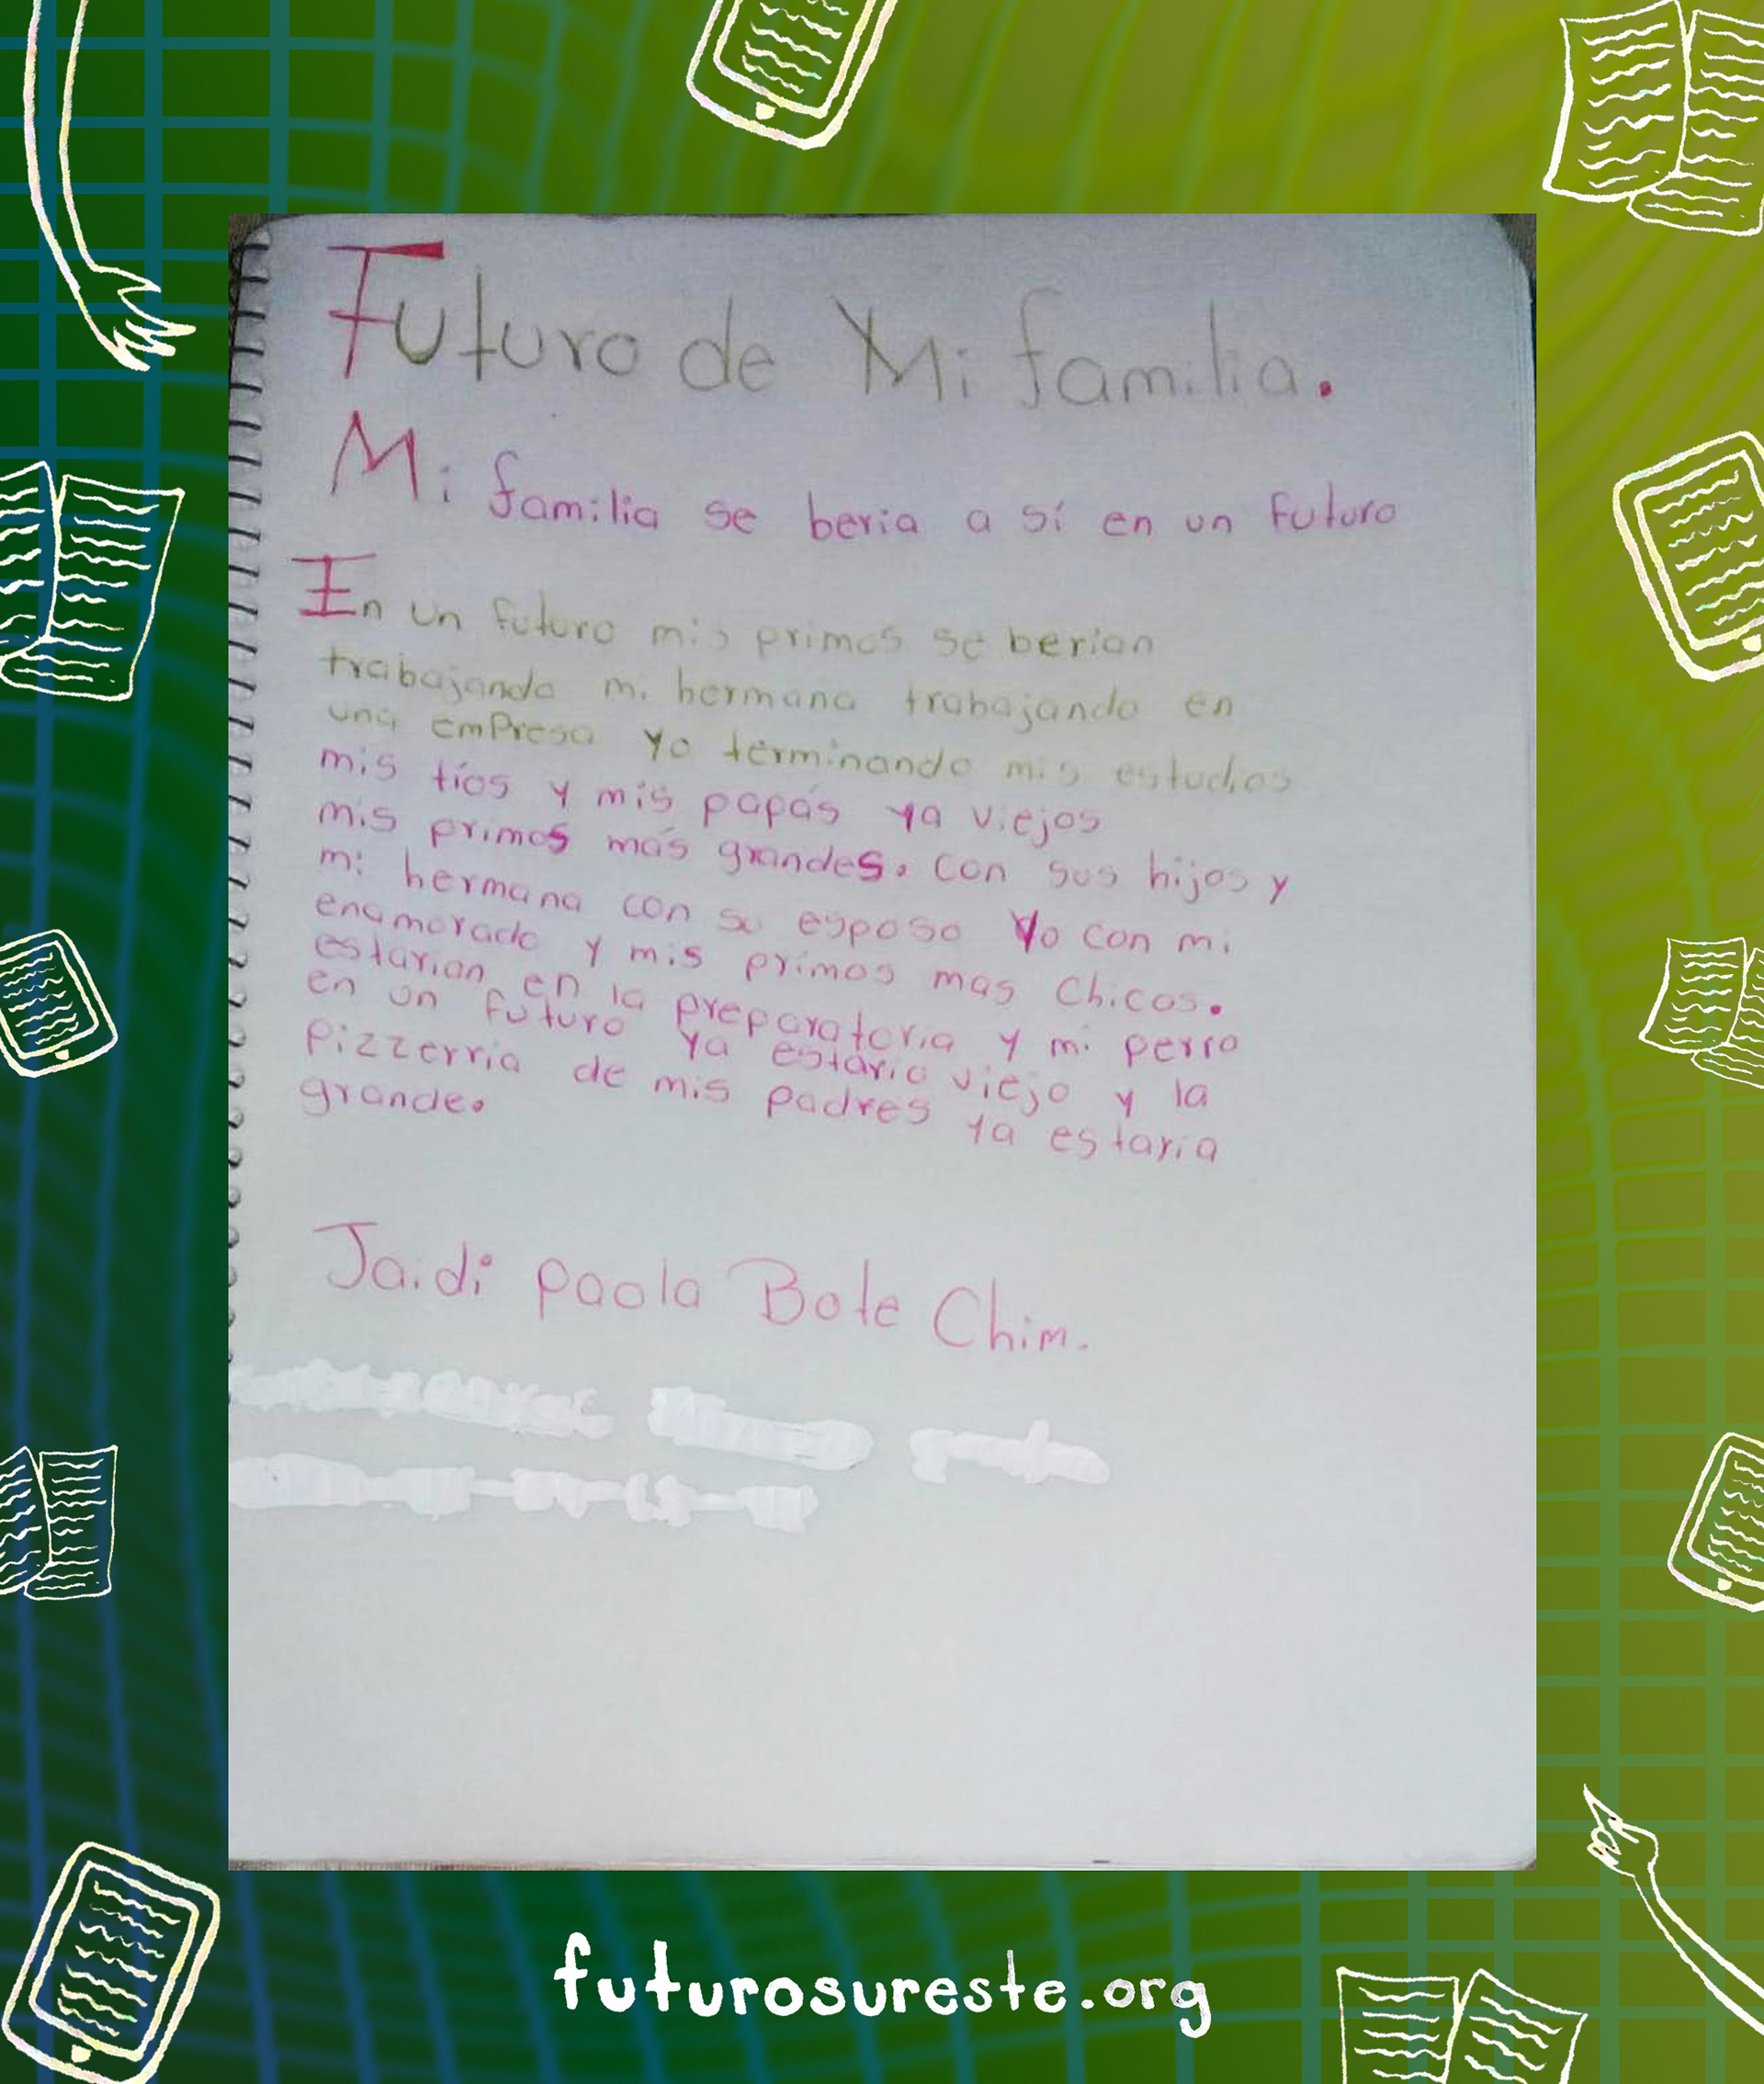 Futuro de Mi familia.
Mi familia se beria a sí en un futuro
En un futuro mis primos se berian
trabajando mi hermana trabajando en
una empresa Yo terminando mis estudios
mis tíos y mis papás ya viejos
mis primos más grandes. con sus hijos y
mi hermana con su esposo Yo con mi
enamorado y mis primos mas chicos.
estarian en la preparatoria y mi perro
en un futuro ya estaria viejo y la
Pizzerria de mis padres ya estaria
grande.
Jaidi paola Bote Chim.
futurosureste.org